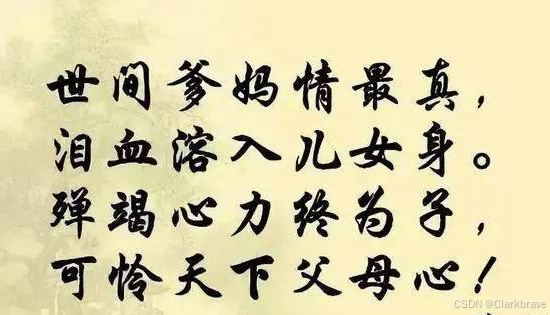 世间爹妈情最真，
泪血溶入儿女身。
殚竭心力终为子，
可怜天下父母心！
CSDN @Clarkbrave